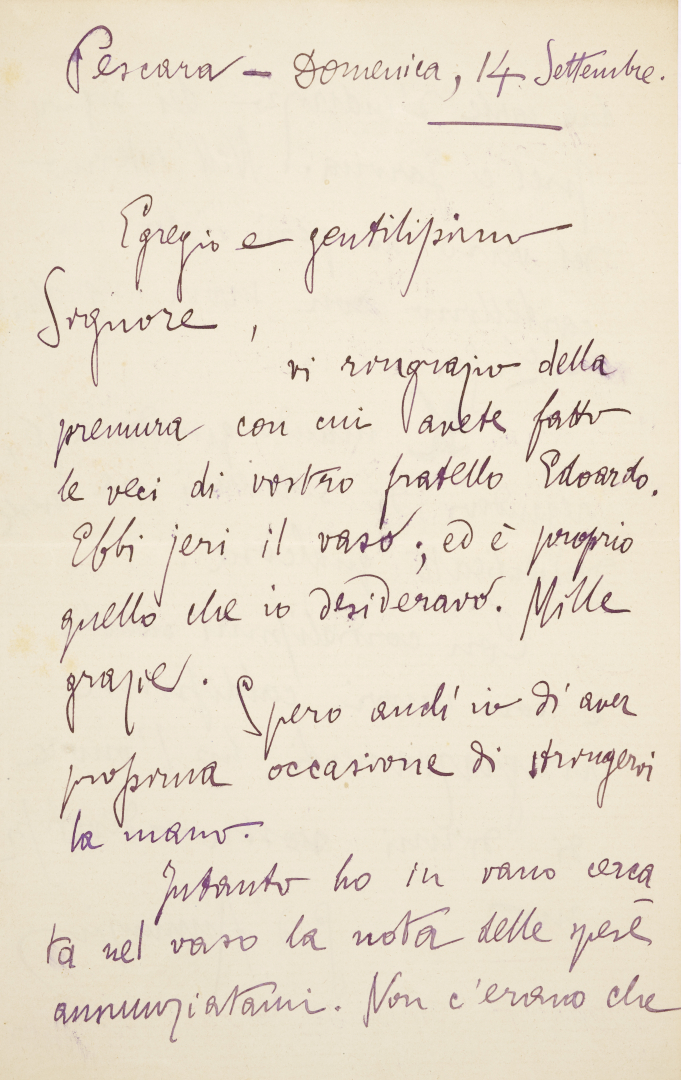 Pescara – Domenica, 14 Settembre.
Egregio e gentilissimo
Signore,
vi ringrazio della
premura con cui avete fatto
le veci di vostro fratello Edoardo.
Ebbi jeri il vaso; ed è proprio
quello che io desideravo. Mille
grazie.
Spero anch'io di aver
prossima occasione di stringervi
la mano.
Intanto ho in vano cerca
ta nel vaso la nota delle spese
annunziatami. Non c'erano che